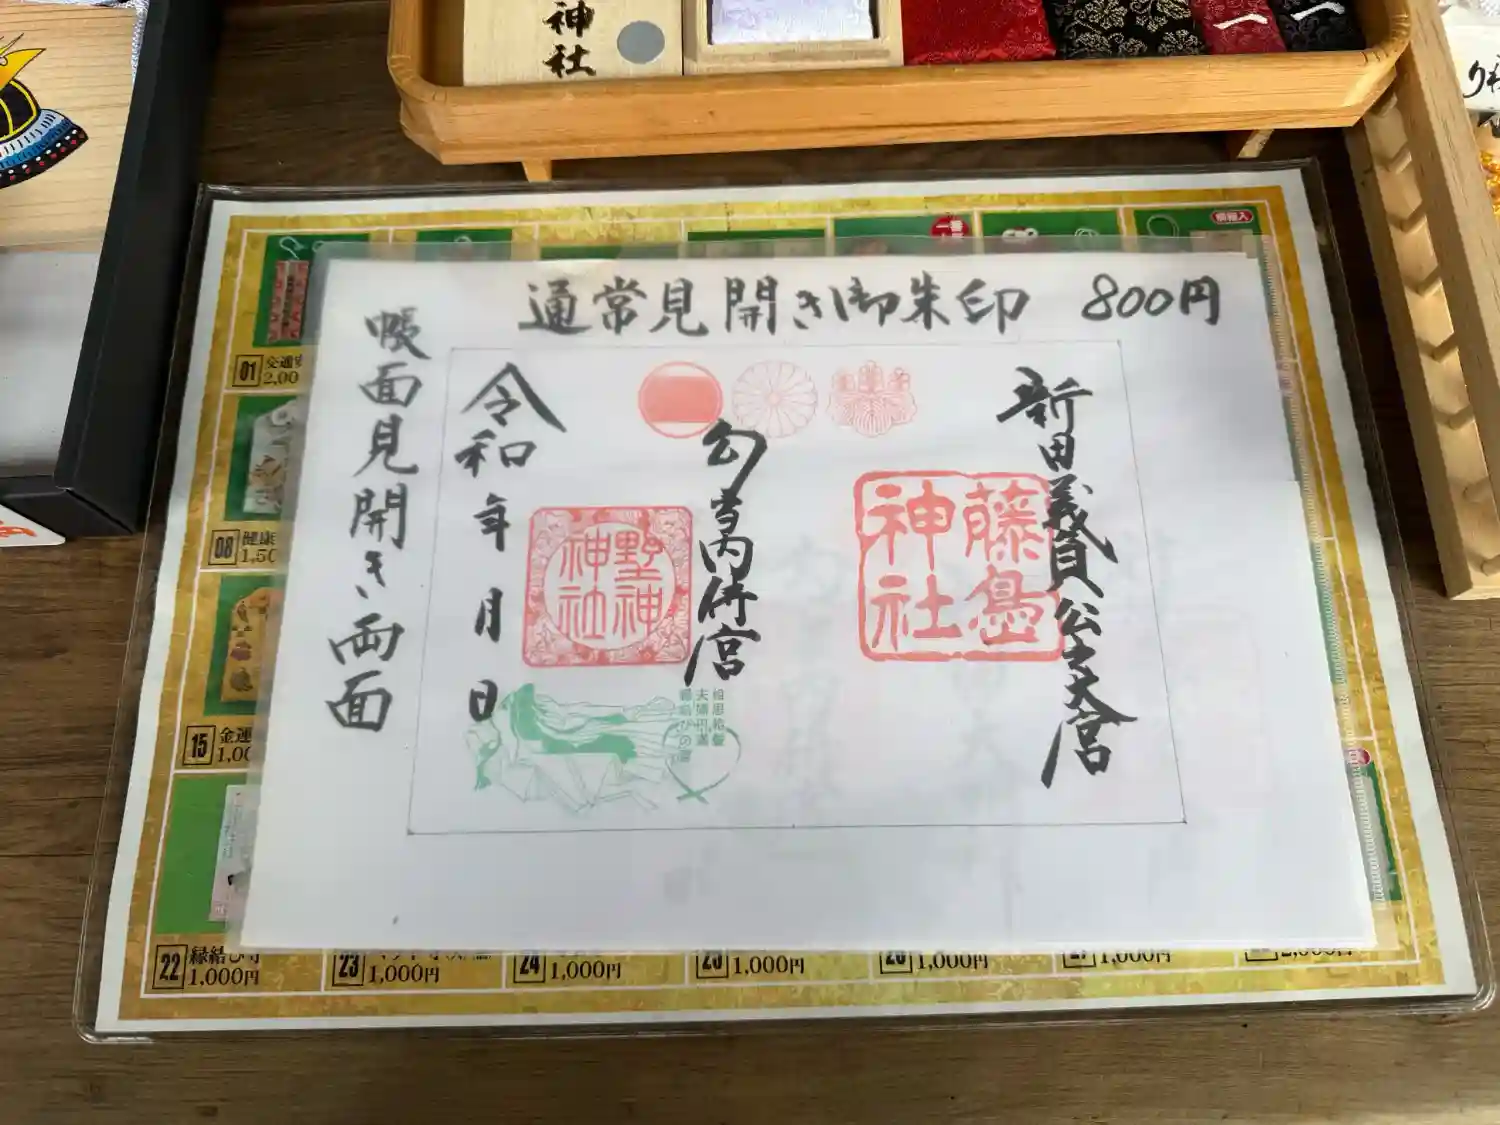 神社
通常見開き御朱印 800円
新田義貞公大宮
藤島
神社
勾当内侍宮
野神
神社
令和 年 月 日
相思結髪
夫婦円満
帳面見開き両面
01
2,00
08
健康
1,50
15
金運
1,00
22
縁結び守
1,000円
23
1,000円
24
1,000円
25
1,000円
1,000円
1,000円